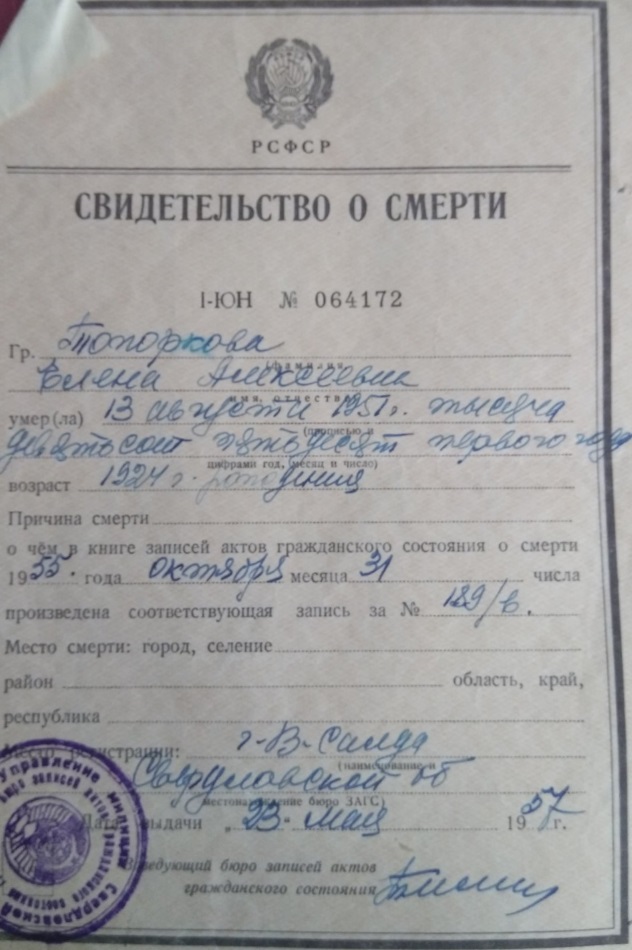 РСФСР
СВИДЕТЕЛЬСТВО О СМЕРТИ
I-ЮН № 064172
Гр. Топоркова
(фамилия,
Елена Алексеевна
имя, отчество)
умер(ла) 13 августа 1951г. тысяча
(прописью и
девятьсот пятьдесят первого года
цифрами год, месяц и число)
возраст 1924 г. рождения
Причина смерти
о чём в книге записей актов гражданского состояния о смерти
1955. года октября месяца 31 числа
произведена соответствующая запись за № 189/в.
Место смерти: город, селение
район область, край,
республика
Место регистрации: г-В-Салда
(наименование и
Свердловской об
местонахождение бюро ЗАГС)
Дата выдачи „23" мая 1957г.
Заведующий бюро записей актов
гражданского состояния
Управление милиции Свердловской
бюро записей актов гражданского состояния